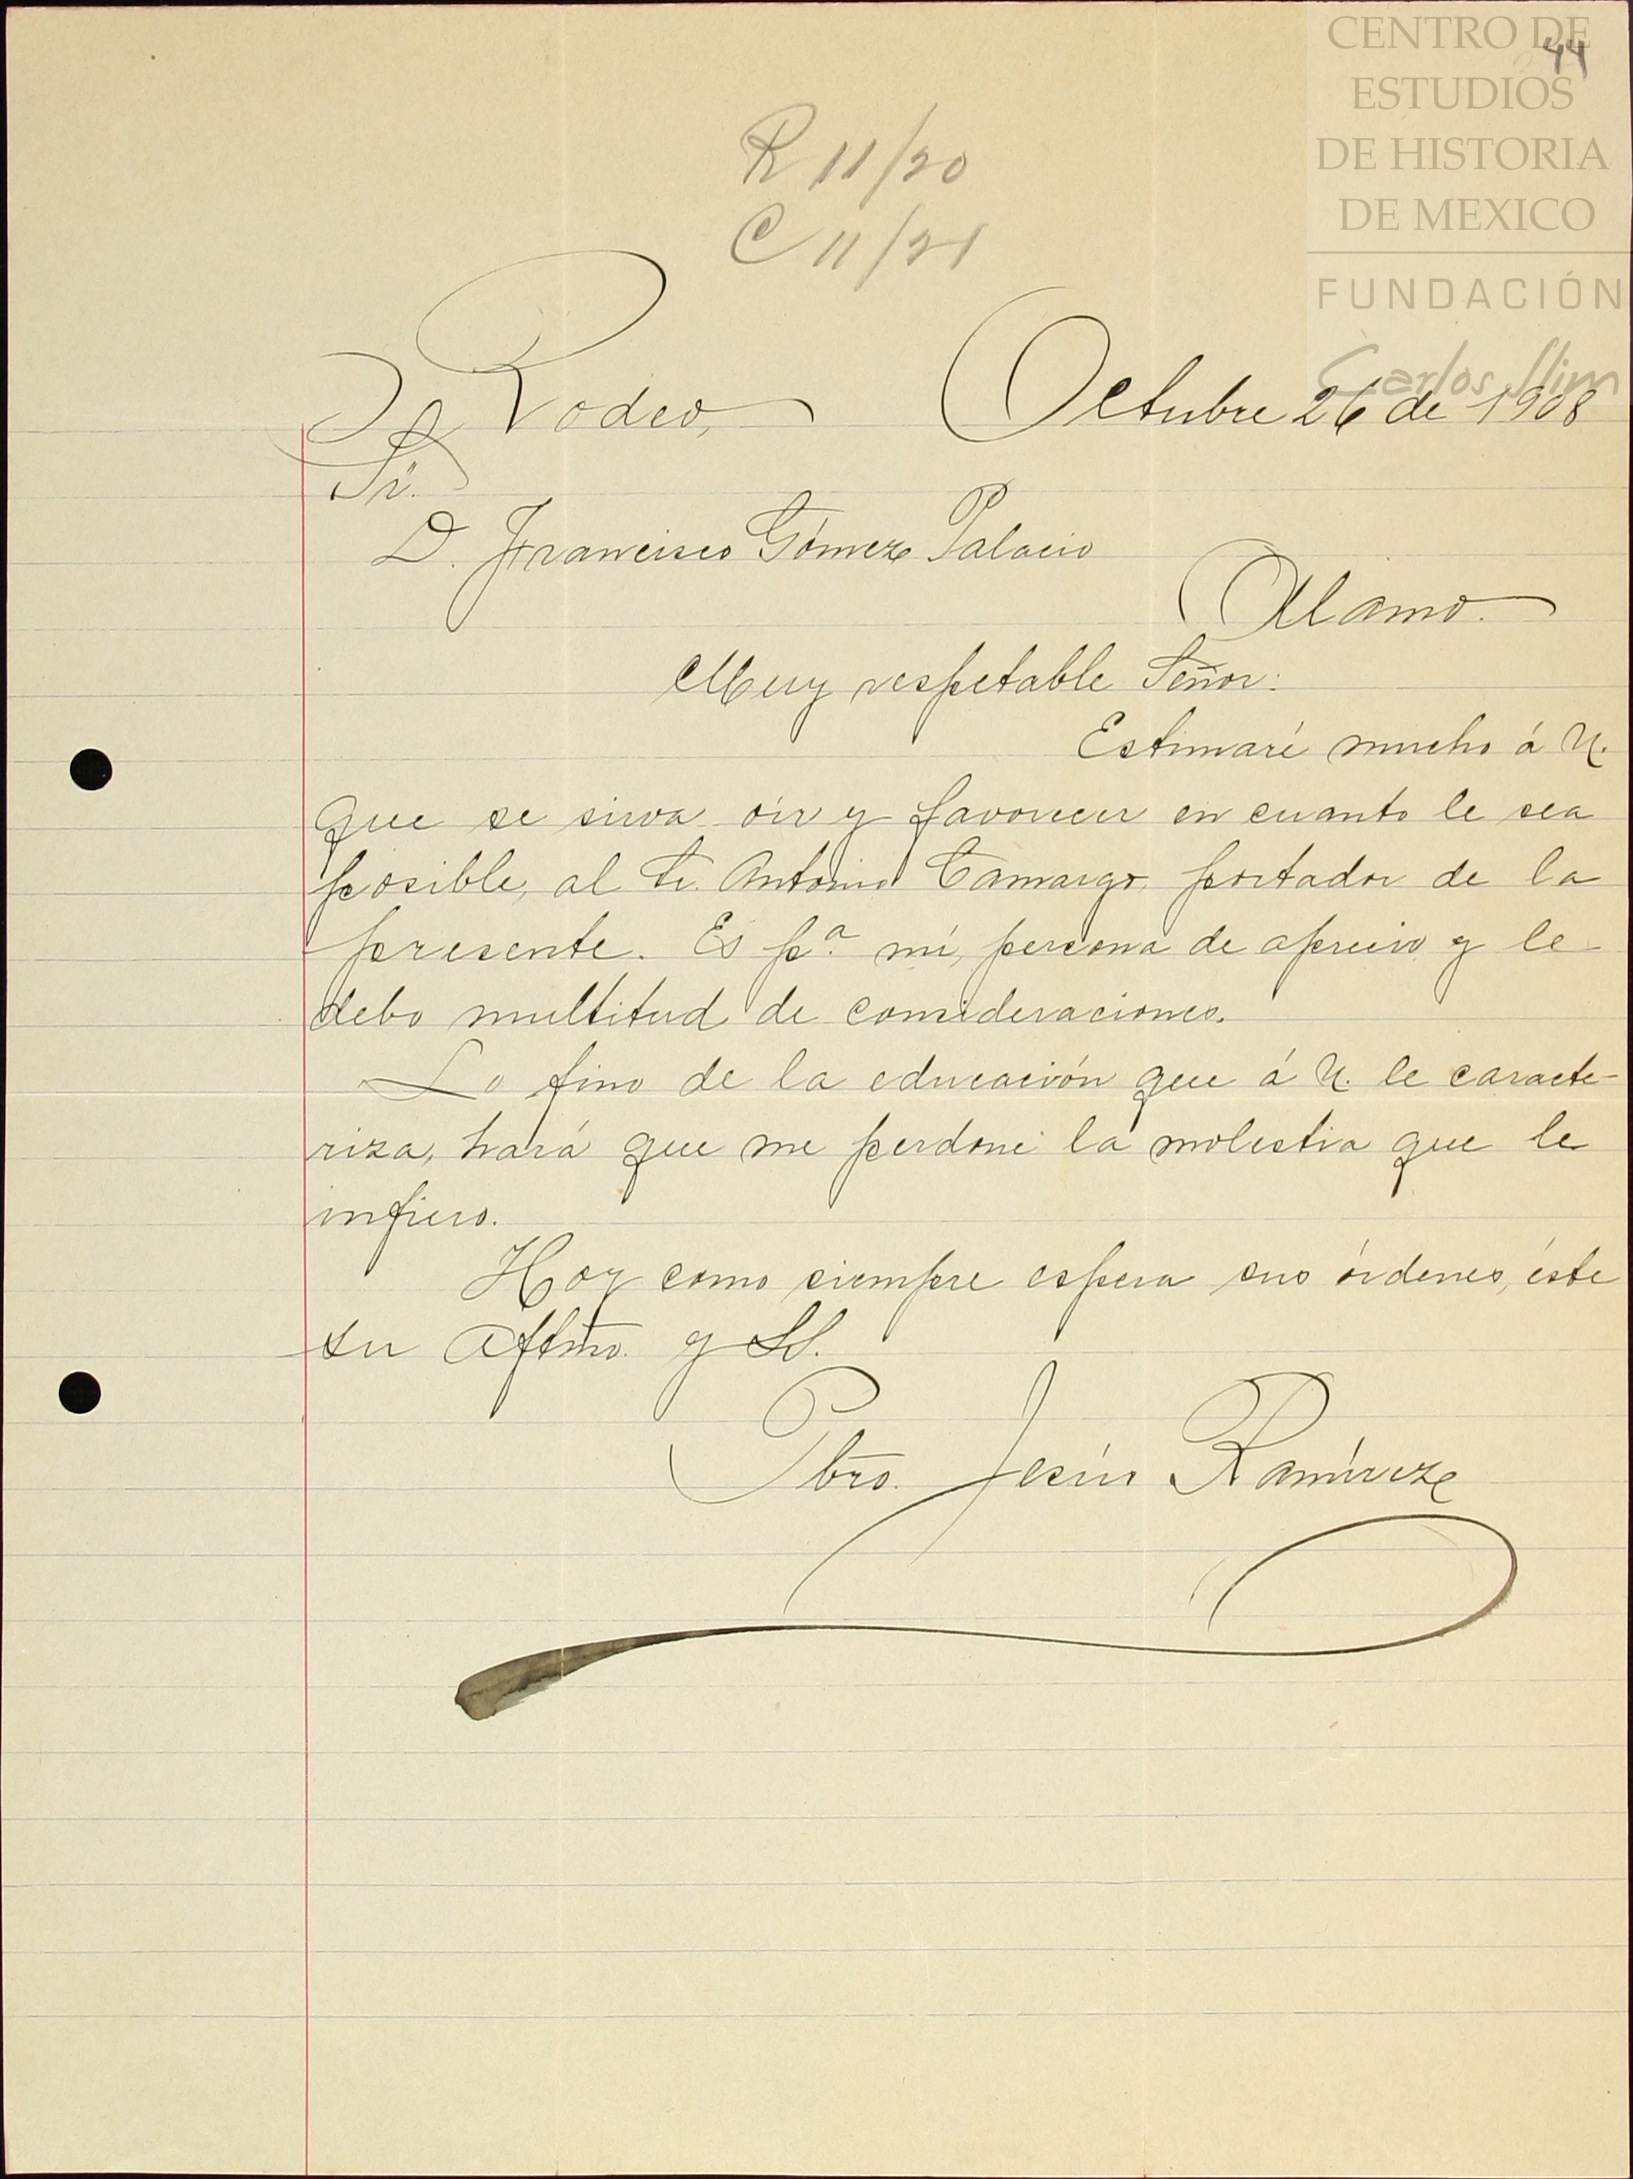 CENTRO DE
ESTUDIOS
DE HISTORIA
DE MEXICO
FUNDACIÓN
Carlos Slim
44
R 11/20
C 11/21
Rodeo, Octubre 26 de 1908
Sr.
D. Francisco Gómez Palacio
Alamo.
Muy respetable Señor:
Estimaré mucho á U.
que se sirva oir y favorecer en cuanto le sea
posible, al Sr. Antonio Camargo, portador de la
presente. Es pª. mí, persona de aprecio y le
debo multitud de consideraciones.
Lo fino de la educación que á U. le caracte-
riza, hará que me perdone la molestia que le
infiero.
Hoy como siempre espera sus órdenes, éste
su Aftmo. y SS.
Pbro. Jesús Ramírez